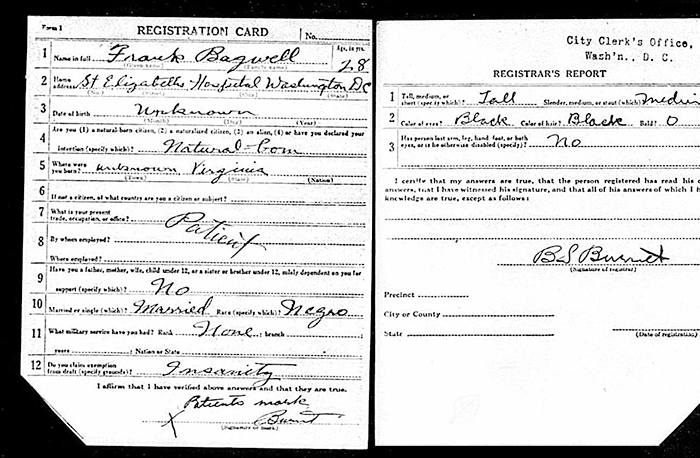 Form 1 REGISTRATION CARD No.
1 Name in full Frank Bagwell Age, in yrs. 28
(Given name) (Family name)
2 Home address St Elizabeths Hospital Washington DC
(No.) (Street) (City) (State)
3 Date of birth Unknown
(Month) (Day) (Year)
4 Are you (1) a natural-born citizen, (2) a naturalized citizen, (3) an alien, (4) or have you declared your
intention (specify which)? Natural-born
5 Where were you born? unknown Virginia
(Town) (State) (Nation)
6 If not a citizen, of what country are you a citizen or subject?
7 What is your present trade, occupation, or office? Patient
8 By whom employed?
Where employed?
9 Have you a father, mother, wife, child under 12, or a sister or brother under 12, solely dependent on you for
support (specify which)? No
10 Married or single (which)? Married Race (specify which)? Negro
11 What military service have you had? Rank None ; branch
years ; Nation or State
12 Do you claim exemption from draft (specify grounds)? Insanity
I affirm that I have verified above answers and that they are true.
Patients mark
X
(Signature or mark)
City Clerk's Office,
Wash'n., D. C.
REGISTRAR'S REPORT
1 Tall, medium, or short (specify which)? Tall Slender, medium, or stout (which)?
2 Color of eyes? Black Color of hair? Black Bald? O
3 Has person lost arm, leg, hand, foot, or both
eyes, or is he otherwise disabled (specify)? No
I certify that my answers are true, that the person registered has read his
answers, that I have witnessed his signature, and that all of his answers of which I
knowledge are true, except as follows:
(Signature of registrar)
Precinct
City or County
State
(Date of registration)